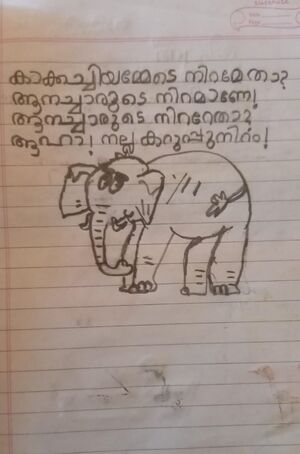 കാക്കച്ചിയമ്മേടെ നിറമേതാ?
ആനച്ചാരുടെ നിറമാണേ!
ആനച്ചാരുടെ നിറമേതാ?
ആഹാ! നല്ല കറുപ്പുനിറം!